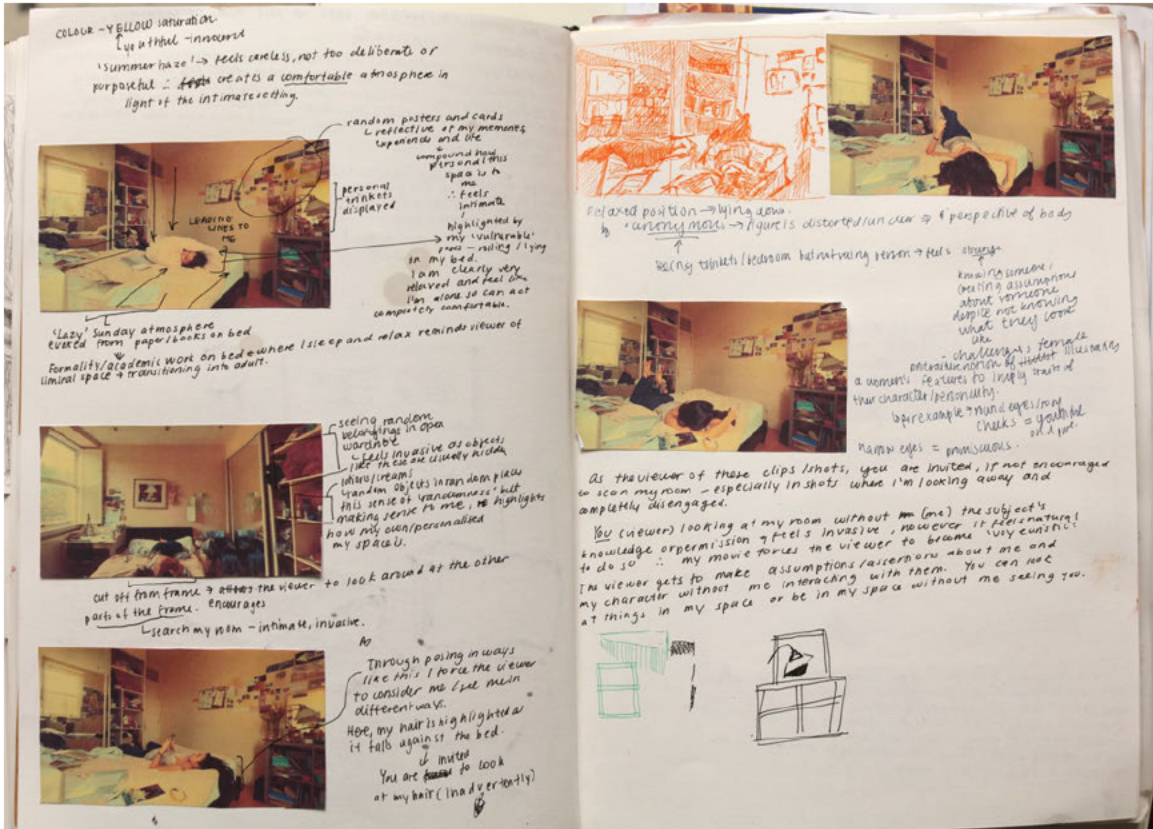 COLOUR - YELLOW saturation
youthful - innocent
'summer haze' → feels careless, not too deliberate or
purposeful ∴ creates a comfortable atmosphere in
light of the intimate setting.
random posters and cards
reflective of my memories,
experiences and life
compound how
personal this
space is to
me
∴ feels
intimate
highlighted by
my 'vulnerable'
poses - rolling / lying
in my bed.
I am clearly very
relaxed and feel like
I'm alone so can act
completely comfortable.
personal
trinkets
displayed
LEADING
LINES TO
ME
'Lazy' Sunday atmosphere
evoked from paper/books on bed
Formality/academic work on bed → where I sleep and relax reminds viewer of
liminal space → transitioning into adult.
seeing random
belongings in open
wardrobe
feels invasive as objects
like these are usually hidden
lotions/creams
random objects in random places
this sense of 'randomness' but
making sense to me, highlights
how my own/personalised
my space is.
cut off from frame → the viewer to look around at the other
parts of the frame. encourages
search my room - intimate, invasive.
Through posing in ways
like this I force the viewer
to consider me / see me in
different ways.
Here, my hair is highlighted as
it falls against the bed.
invited
You are to look
at my hair (inadvertently)
Relaxed position → lying down.
'anonymous' → figure is distorted/unclear → perspective of body
seeing trinkets/bedroom but not seeing person → feels strange
knowing someone,
creating assumptions
about someone
despite not knowing
what they look
like
- challenges female
portraiture notion of illustrating
a women's features to imply traits of
their character/personality.
for example → round eyes/rosy
cheeks = youthful
and pure.
narrow eyes = promiscuous.
As the viewer of these clips/shots, you are invited, if not encouraged
to scan my room - especially in shots where I'm looking away and
completely disengaged.
You (viewer) looking at my room without (me) the subject's
knowledge or permission feels invasive, however it feels natural
to do so ∴ my movie forces the viewer to become 'voyeuristic'.
The viewer gets to make assumptions/assertions about me and
my character without me interacting with them. You can look
at things in my space or be in my space without me seeing you.